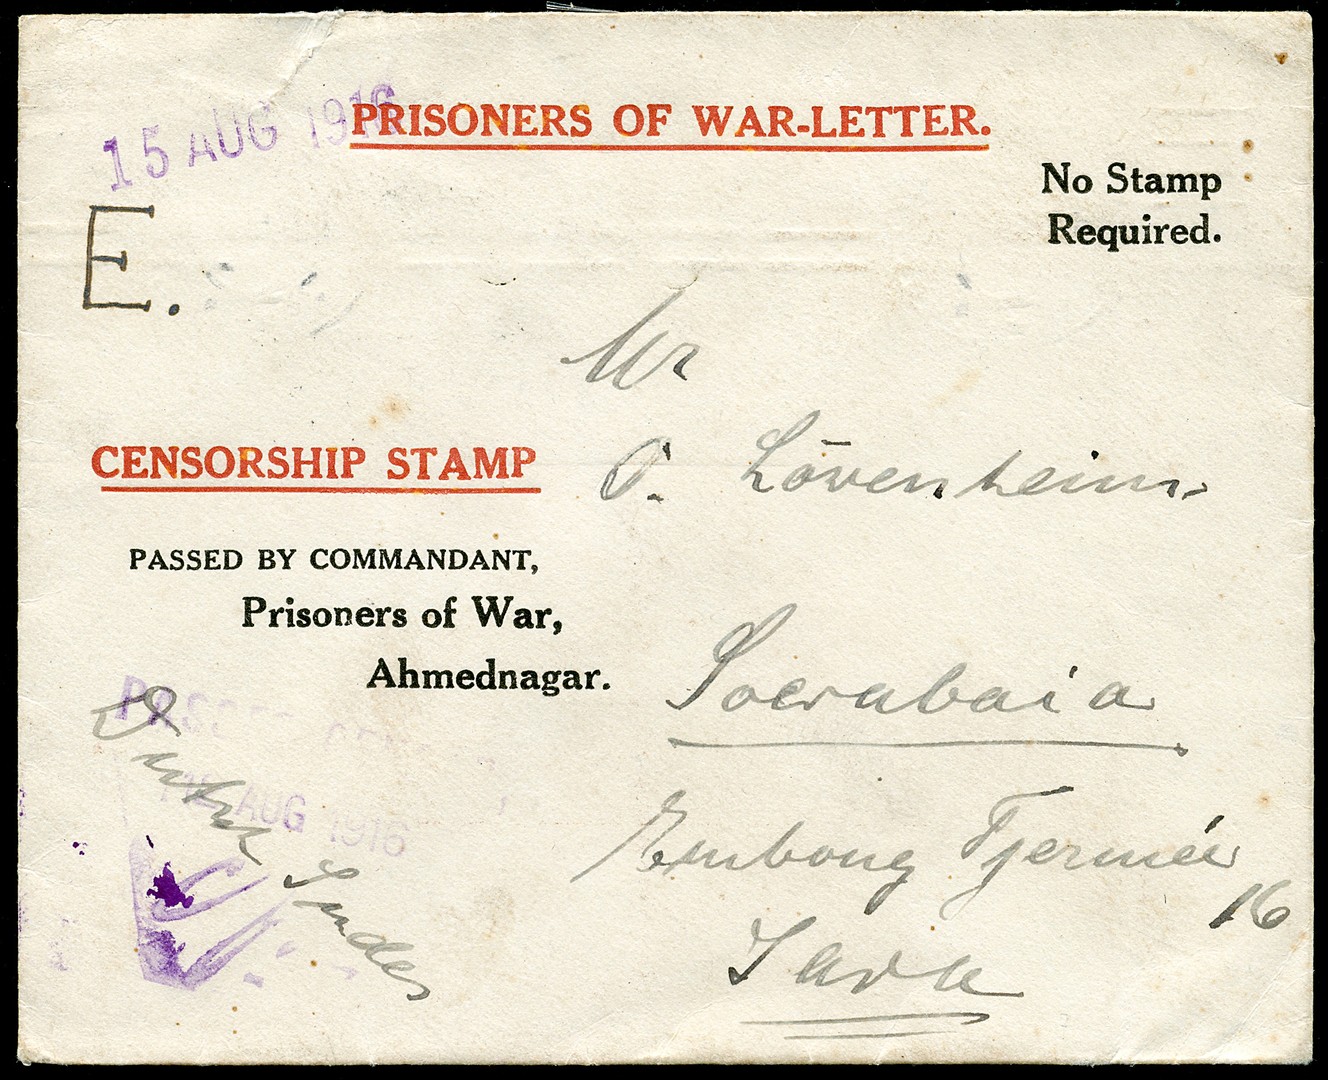 15 AUG 1916
PRISONERS OF WAR-LETTER.
No Stamp
Required.
E.
Mr
O. Lövenheim
CENSORSHIP STAMP
PASSED BY COMMANDANT,
Prisoners of War,
Ahmednagar.
Soerabaia
PASSED
12 AUG 1916
Dutch Indies
Embong Tjermée
16
Java